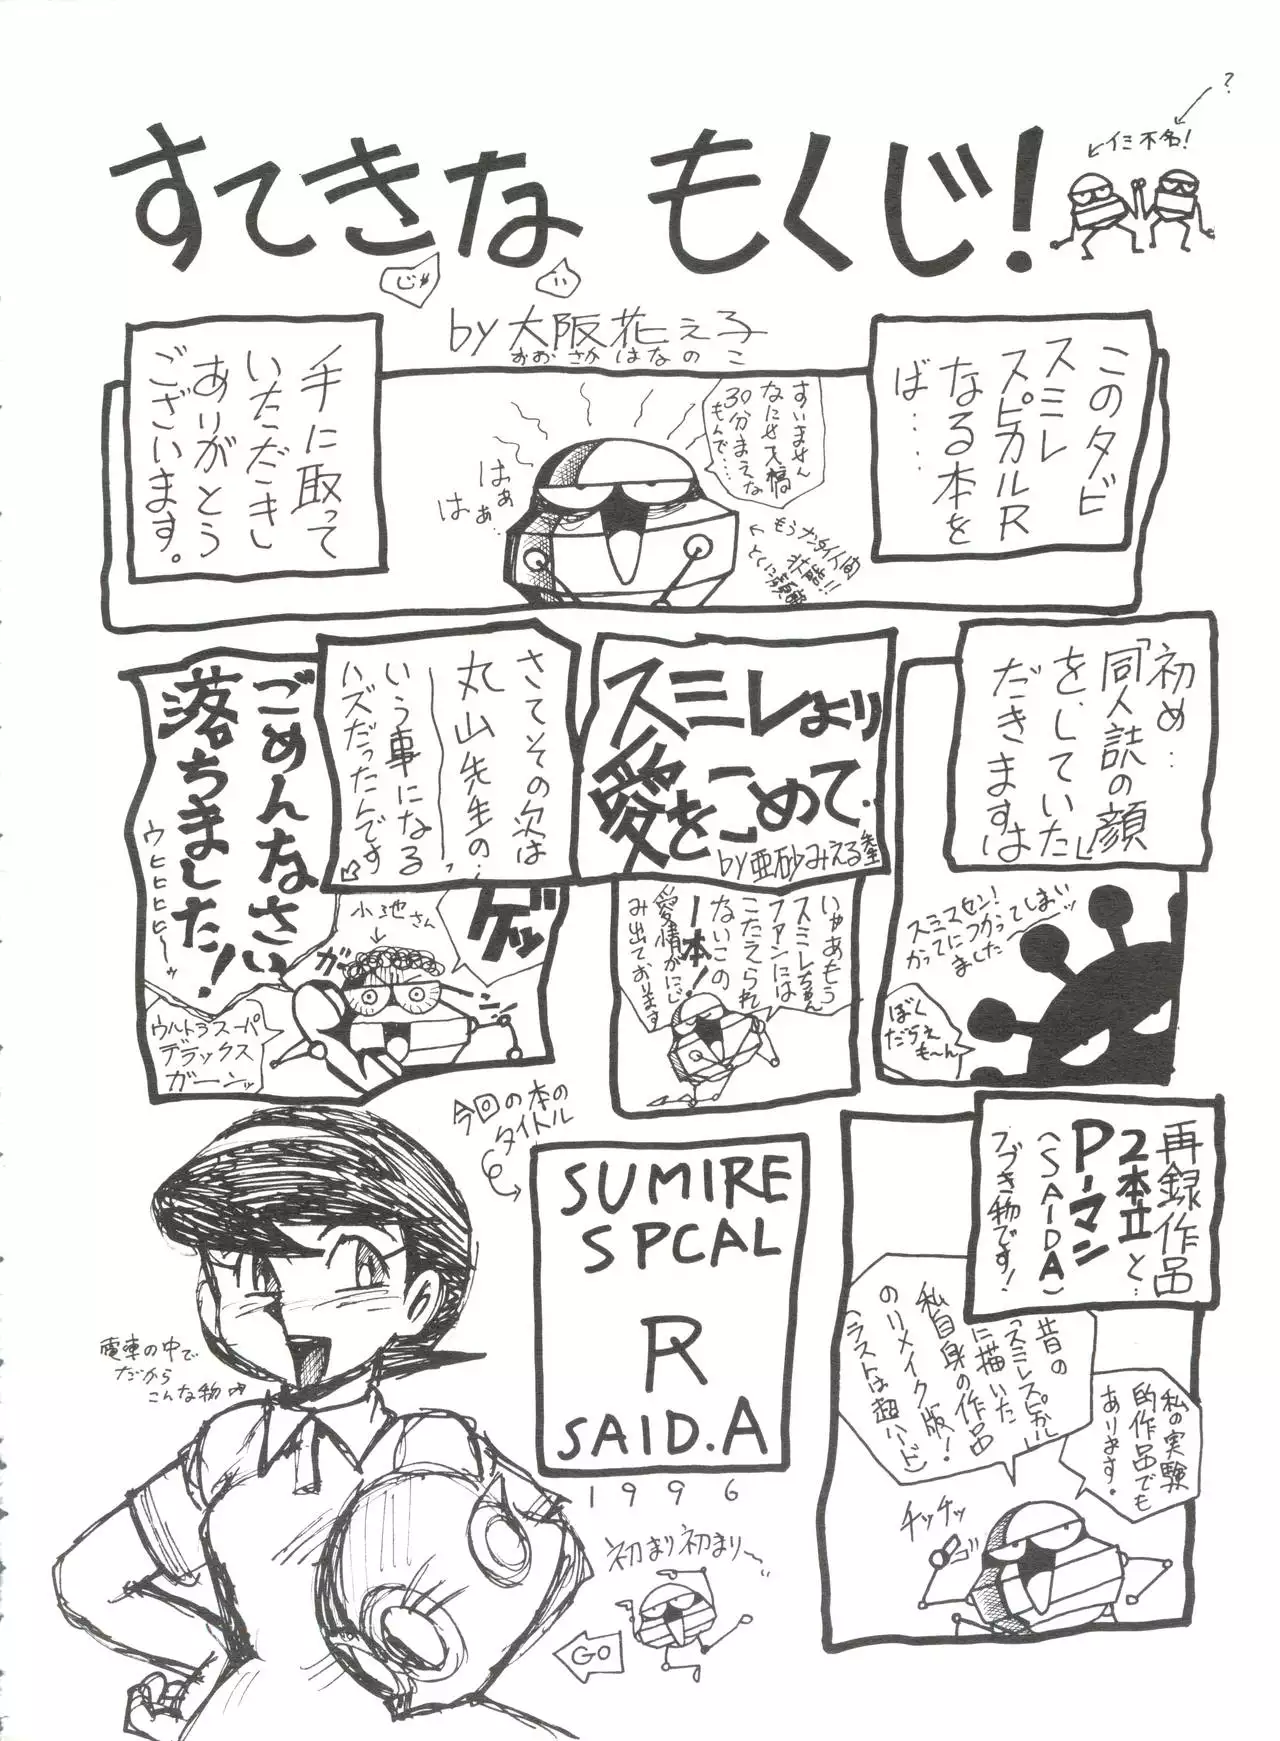 ?
すてきな もくじ!
←イミ不名!
じゃ
ない
by 大阪花え子
おおさかはなのこ
このタビ
スミレ
スピカルR
なる本を
ば……
すいません
なにせ大稿
30分まえな
もんで…
はぁぁ
はぁ…
←もうナンタイ人間
状態!!
手に取って
いただきし
ありがとう
ございます。
初め…
「同人誌の顔」
を、していた
だきますは
スミスセン!
かってにつかってしまいッ
ました
ぼく
だらえ
も〜ん
スミレより
愛をこめて.
by亜砂みえる先生
いゃあもう
スミレちゃん
ファンには
こたえられ
ないこの
一本!
愛情がにじ
み出ております
さてその次は
丸山先生の…
いう事になる
ハズだったんです
ごめんなさい
落ちました!
ウヒヒヒヒ〜ッ
ゲッ
小池さん
ガーン
ウルトラスーパー
デラックス
ガーンッ
再録作品
2本立と…
P-マン
(SAIDA)
ブづき物です!
昔の
「スミレスピカル」
に描いた
私自身の作品
のリメイク版!
(ラストは超ハード)
私の実験
的作品でも
あります。
チッチッ
今回の本の
タイトル
SUMIRE
SPCAL
R
SAID.A
1996
電車の中で
だから
こんな物
初まり初まり〜
GO